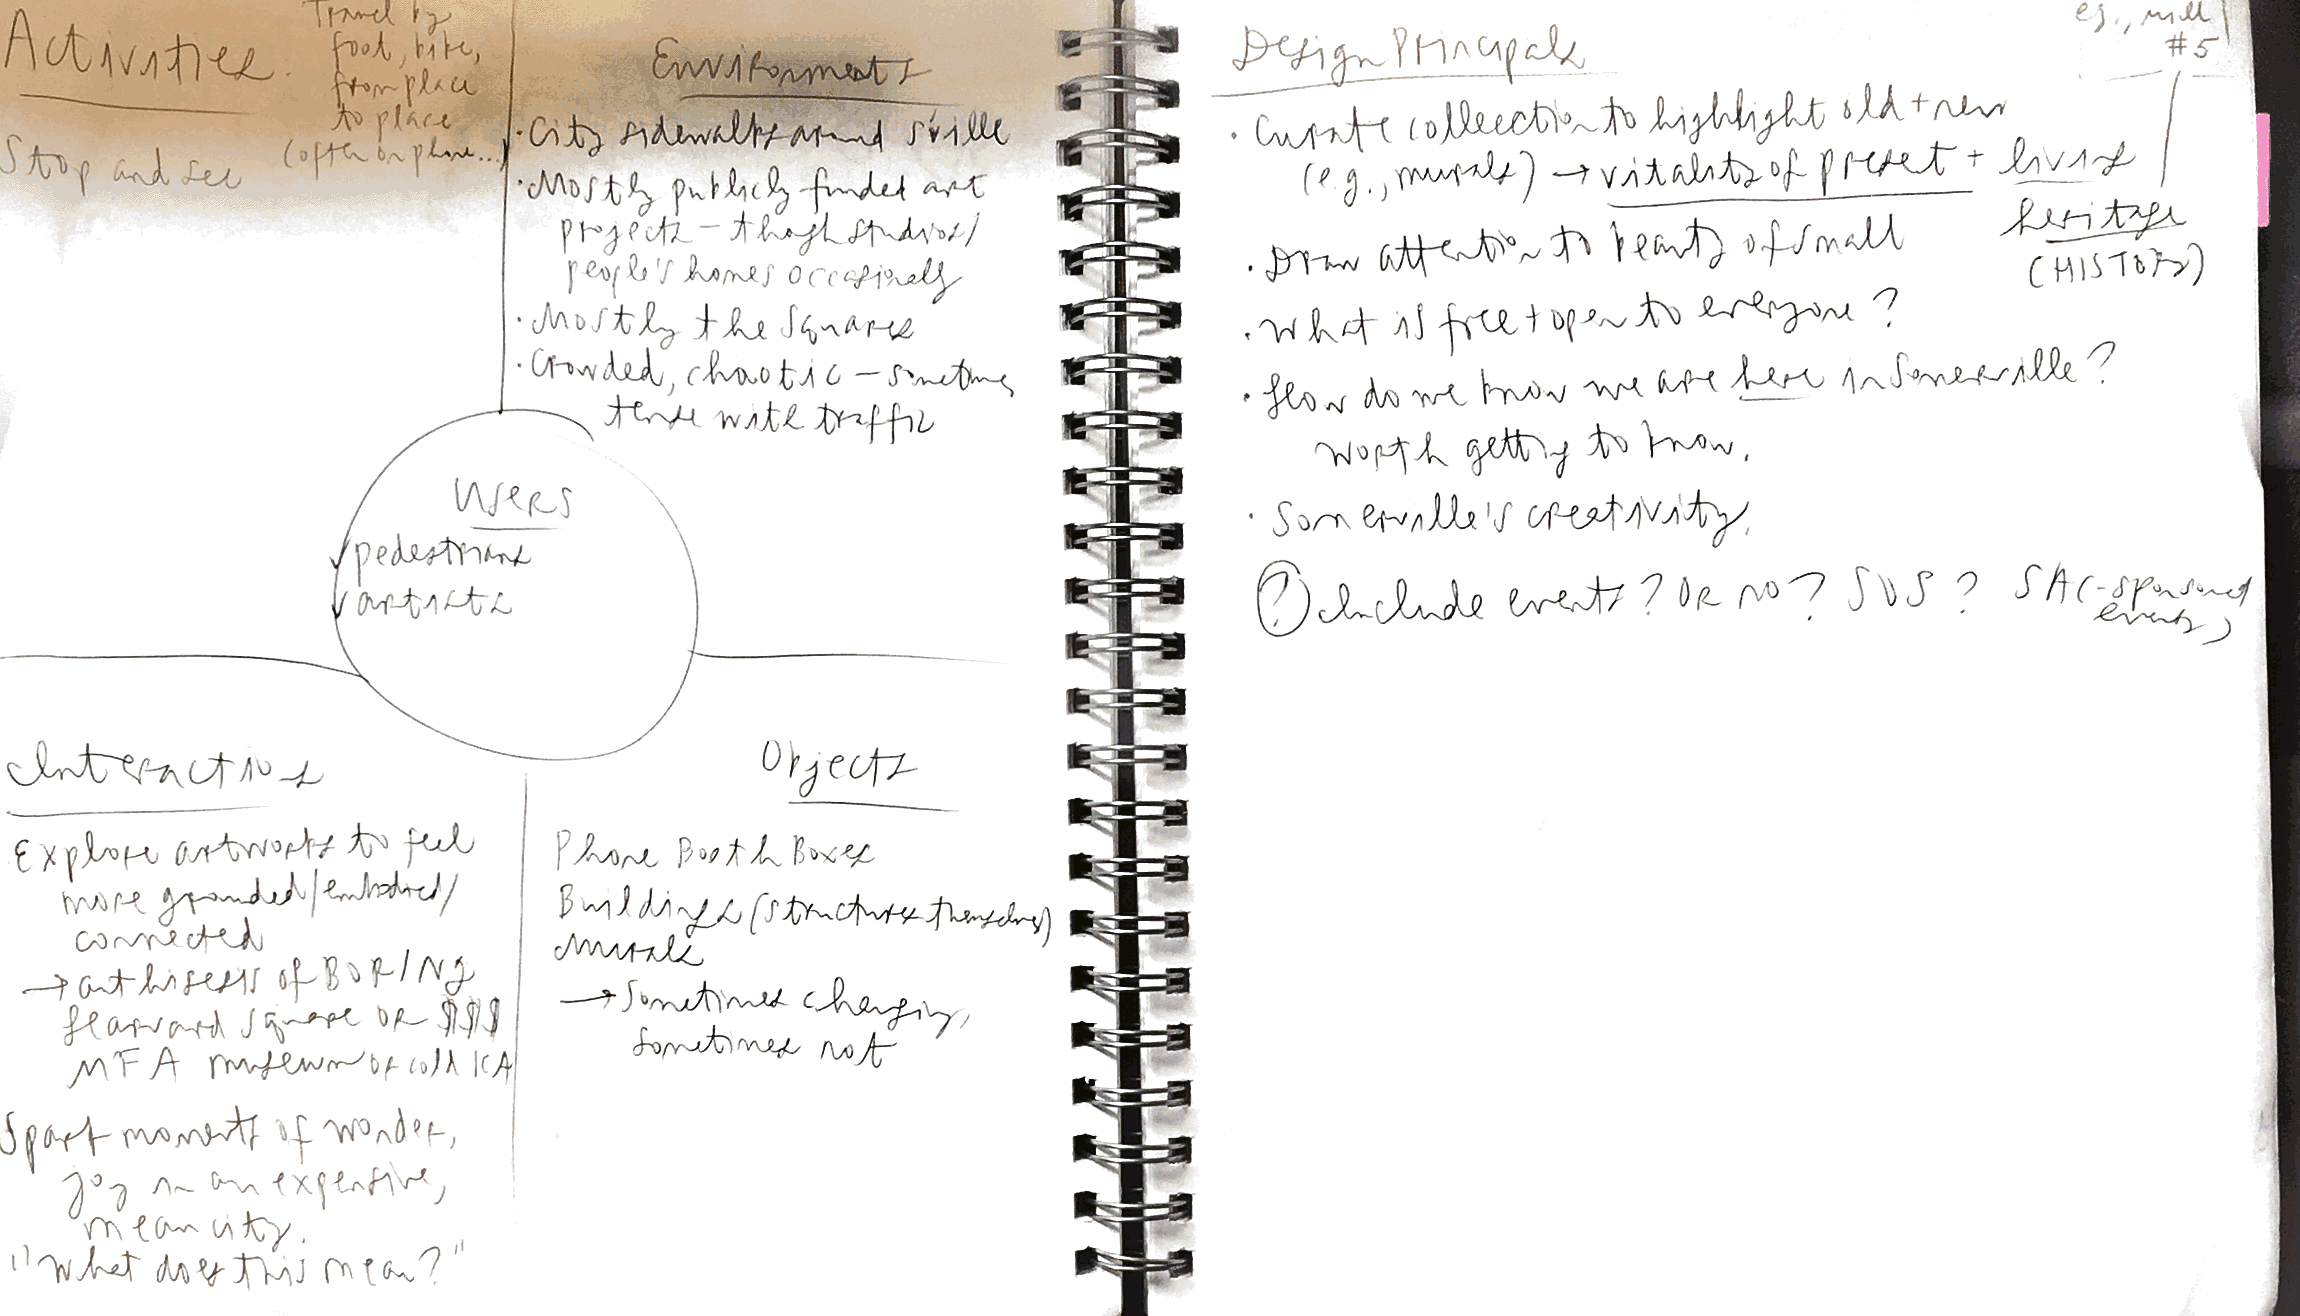 Activities.
Travel by
foot, bike,
from place
to place
(often on phone...)
Stop and see
Environments
· City sidewalks around S'ville
· Mostly publicly funded art
projects – though studios/
people's homes occasionally
· Mostly the Squares
· Crowded, chaotic – sometimes
tense with traffic
Users
✓ pedestrians
✓ artists
Interactions
Explore artworks to feel
more grounded/embodied/
connected
→ anthisesis of BORING
Harvard Square OR $$$
MFA museum or cold ICA
Spark moments of wonder,
joy in an expensive,
mean city.
"What does this mean?"
Objects
Phone Booth Boxes
Buildings (structures themselves)
Murals
→ Sometimes changing,
sometimes not
Design Principals
e.g., mill
#5
· Curate colleection to highlight old + new
(e.g., murals) → vitality of present + living
heritage
(HISTORY)
· Draw attention to beauty of small
· What is free + open to everyone?
· How do we know we are here in Somerville?
Worth getting to know.
· Somerville's creativity.
? Include events? OR NO? SOS? SAC-sponsored
events,